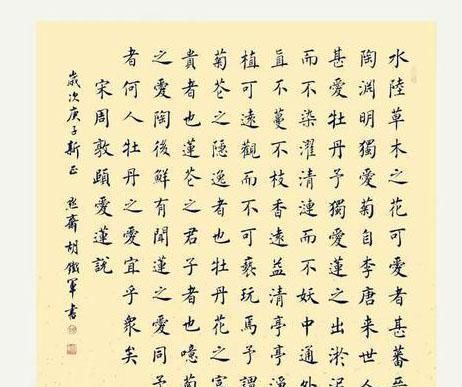 水陸草木之花可愛者甚蕃
陶渊明獨愛菊自李唐来世人
甚愛牡丹予獨愛蓮之出淤
而不染濯清漣而不妖中通外
直不蔓不枝香遠益清亭亭
植可遠觀而不可褻玩焉予謂
菊花之隱逸者也牡丹花之富
貴者也蓮花之君子者也噫菊
之愛陶後鮮有聞蓮之愛同予
者何人牡丹之愛宜乎眾矣
宋周敦頤愛蓮説
歲次庚子新正 齋胡鐵軍書